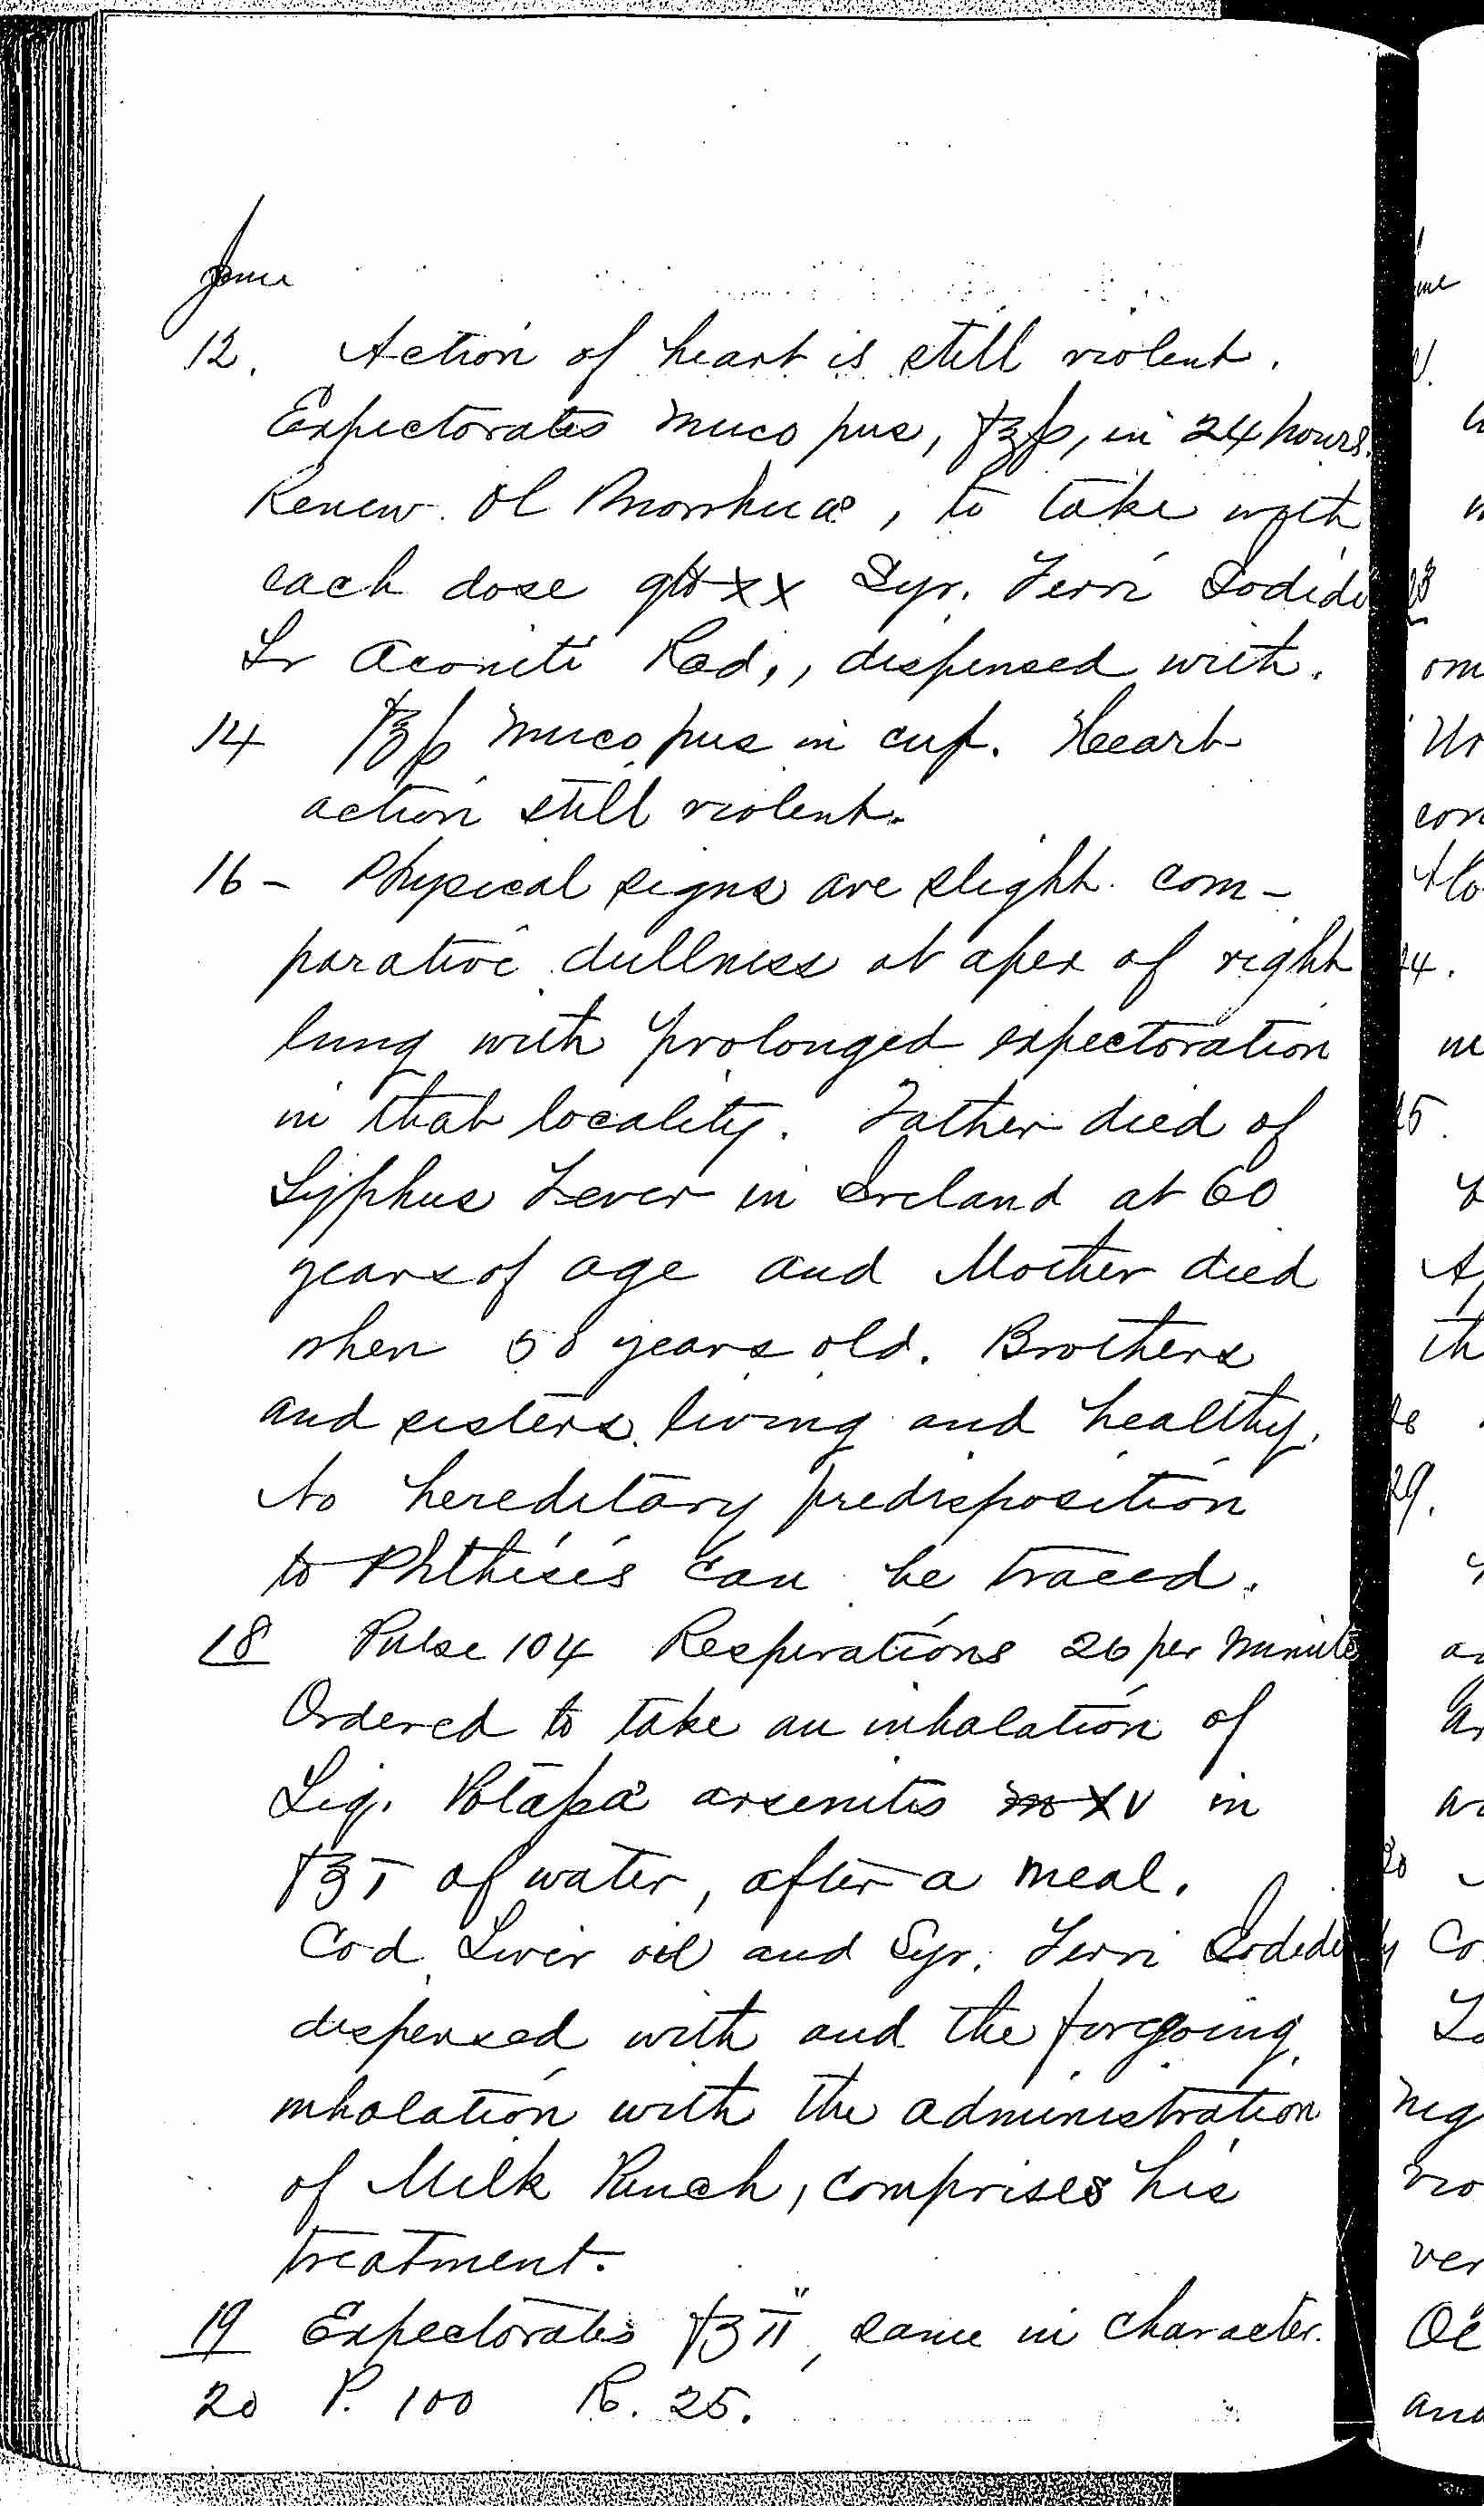 June
12. Action of heart is still violent.
Expectorates muco pus, f℥ß, in 24 hours.
Renew Ol Morrhuæ, to take with
each dose gtt xx Syr. Ferri Iodidi
Tr Aconiti Rad,, dispensed with.
14 f℥ß muco pus in cup. Heart
action still violent.
16 - Physical signs are slight. com-
parative dullness at apex of right
lung with prolonged expectoration
in that locality. Father died of
Typhus Fever in Ireland at 60
years of age and Mother died
when 58 years old. Brothers
and sisters living and healthy.
No hereditary predisposition
to Phthisis can be traced.
18 Pulse 104 Respirations 26 per minute
Ordered to take an inhalation of
Liq. Potassa arsenitis m xv in
f℥ I of water, after a meal.
Cod Liver oil and Syr. Ferri Iodidi
dispensed with and the forgoing
inhalation with the administration
of Milk Punch, comprises his
treatment.
19 Expectorates f℥ II, same in character.
20 P. 100 R. 25.